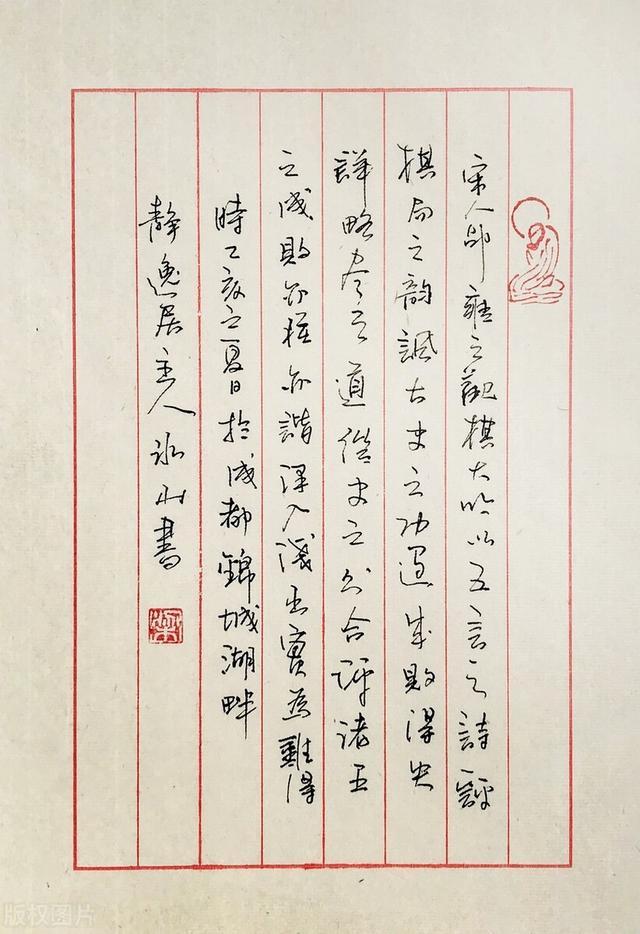 宋人邵雍之觀棋大吟以五言之詩評
棋局之韵諷古史之功過成敗得失
詳略尽之道從史之分合評诸王
之成敗亦推亦諧深入淺出實為難得
時乙亥之夏日於成都錦城湖畔
靜逸居主人冰山書
版权图片